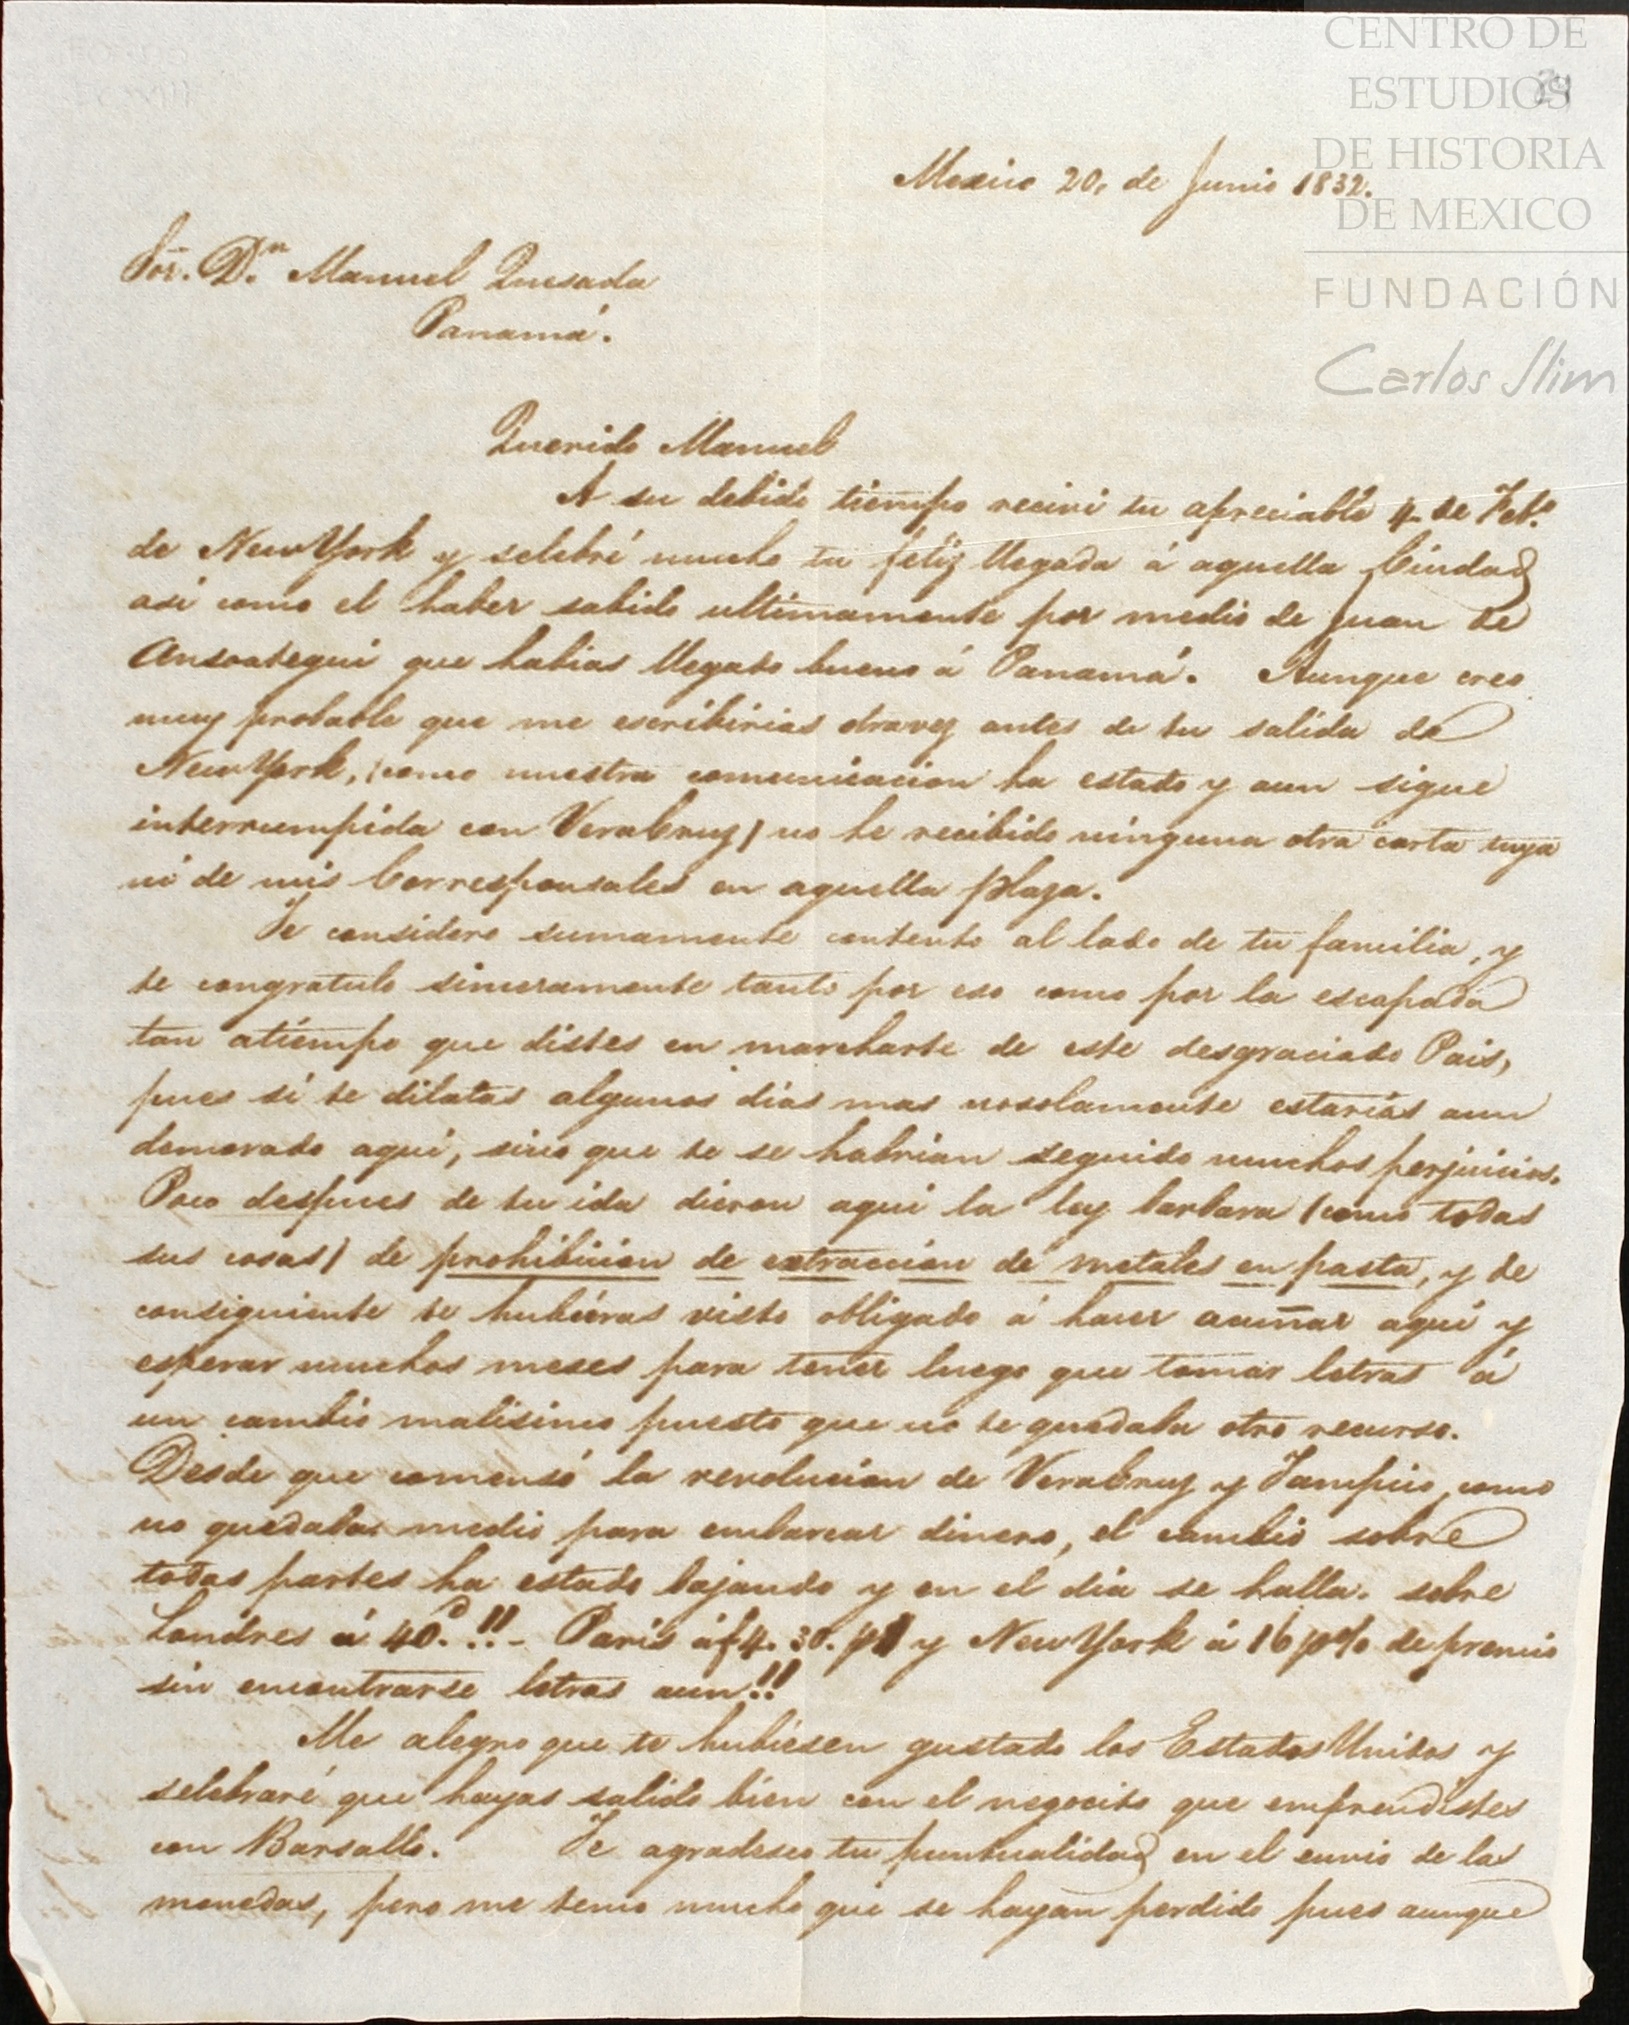 CENTRO DE
ESTUDIOS
DE HISTORIA
DE MEXICO
FUNDACIÓN
Carlos Slim
24
Mexico 20, de Junio 1832.
Sor. Dn. Manuel Quesada
Panamá.
Querido Manuel
A su debido tiempo reciví tu apreciable 4. de Febo.
de NewYork y selebré mucho tu feliz llegada á aquella Ciudad
asi como el haber sabido ultimamente por medio de Juan de
Ansoategui que habias llegado bueno á Panamá. Aunque creo
muy probable que me escribirias otravez antes de tu salida de
NewYork, (como nuestra comunicacion ha estado y aun sigue
interrumpida con VeraCruz) no he recibido ninguna otra carta tuya
ni de mis Corresponsales en aquella plaza.
Te considero sumamente contento al lado de tu familia, y
te congratulo sinceramente tanto por eso como por la escapada
tan atiempo que distes en marcharte de este desgraciado Pais,
pues si te dilatas algunos dias mas nosolamente estarias aun
demorado aquí, sino que te se habrian seguido muchos perjuicios.
Poco despues de tu ida dieron aqui la ley barbara (como todas
sus cosas) de prohibicion de extraccion de metales en pasta, y de
consiguiente te hubieras visto obligado á hacer acuñar aquí y
esperar muchos meses para tener luego que tomar letras á
un cambio malisimo puesto que no te quedaba otro recurso.
Desde que comensó la revolucion de VeraCruz y Tampico, como
no quedaba medio para embarcar dinero, el cambio sobre
todas partes ha estado bajando y en el dia se halla. sobre
Londres á 40d. !!- Paris á f4. 30. p1 y NewYork á 16 p% de premio
sin encontrarse letras aun!!
Me alegro que te hubiesen gustado los Estados Unidos y
selebraré que hayas salido bien con el negocito que emprendistes
con Barsallo. Te agradesco tu puntualidad en el envio de las
monedas, pero me temo mucho que se hayan perdido pues aunque